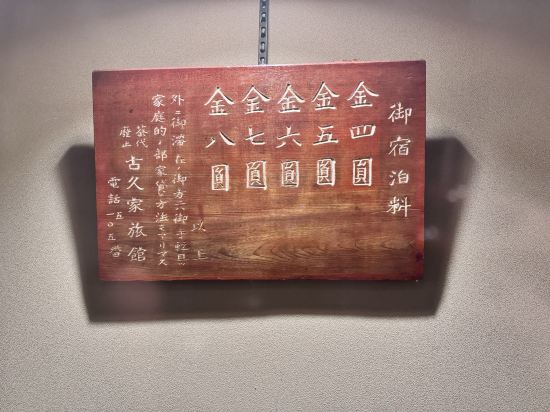 御宿泊料
金四圓
金五圓
金六圓
金七圓
金八圓
以上
外ニ御滞在御方ハ御手軽且ツ
家庭的ノ部家貸シ方法モアリマス
茶代
廃止
古久家旅館
電話一〇五番